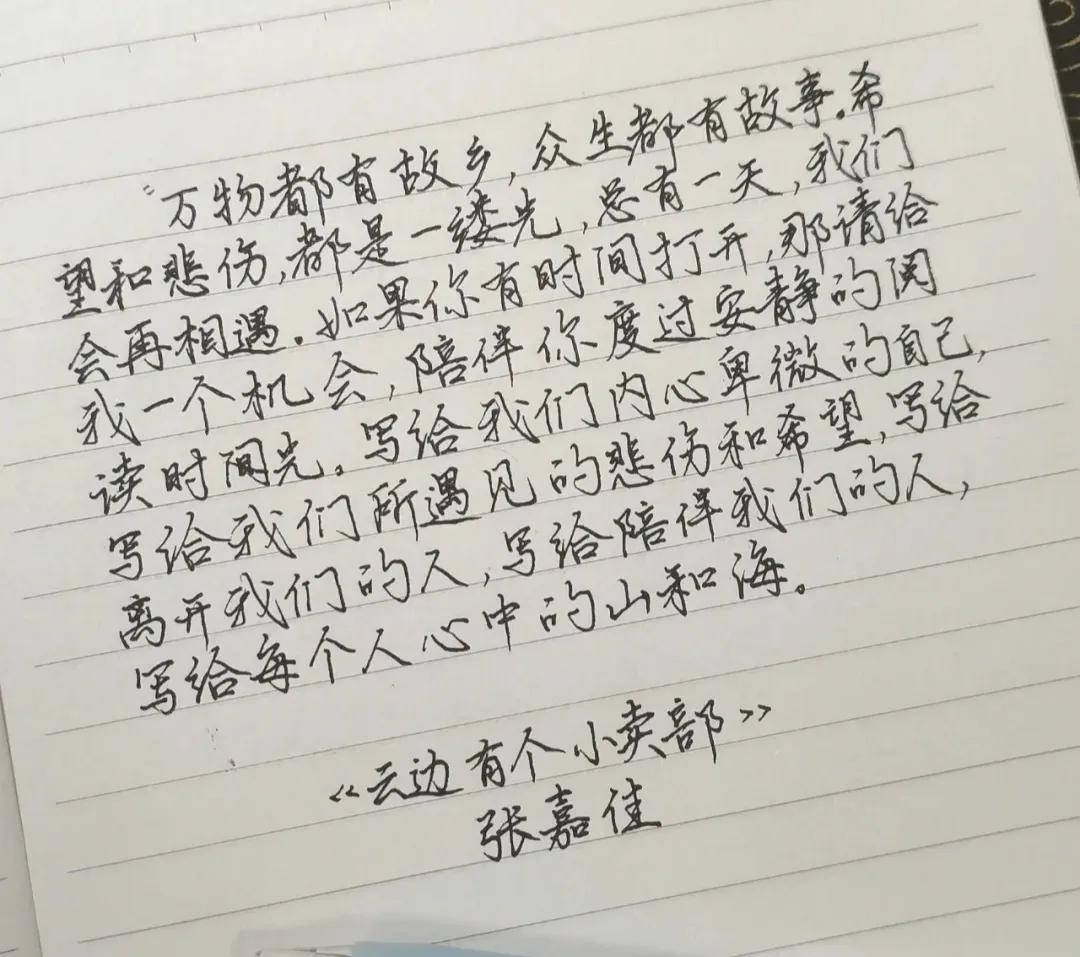 “万物都有故乡,众生都有故事.希
望和悲伤,都是一缕光,总有一天,我们
会再相遇。如果你有时间打开,那请给
我一个机会,陪伴你度过安静的阅
读时间光。写给我们内心卑微的自己,
写给我们所遇见的悲伤和希望,写给
离开我们的人,写给陪伴我们的人,
写给每个人心中的山和海。
《云边有个小卖部》
张嘉佳